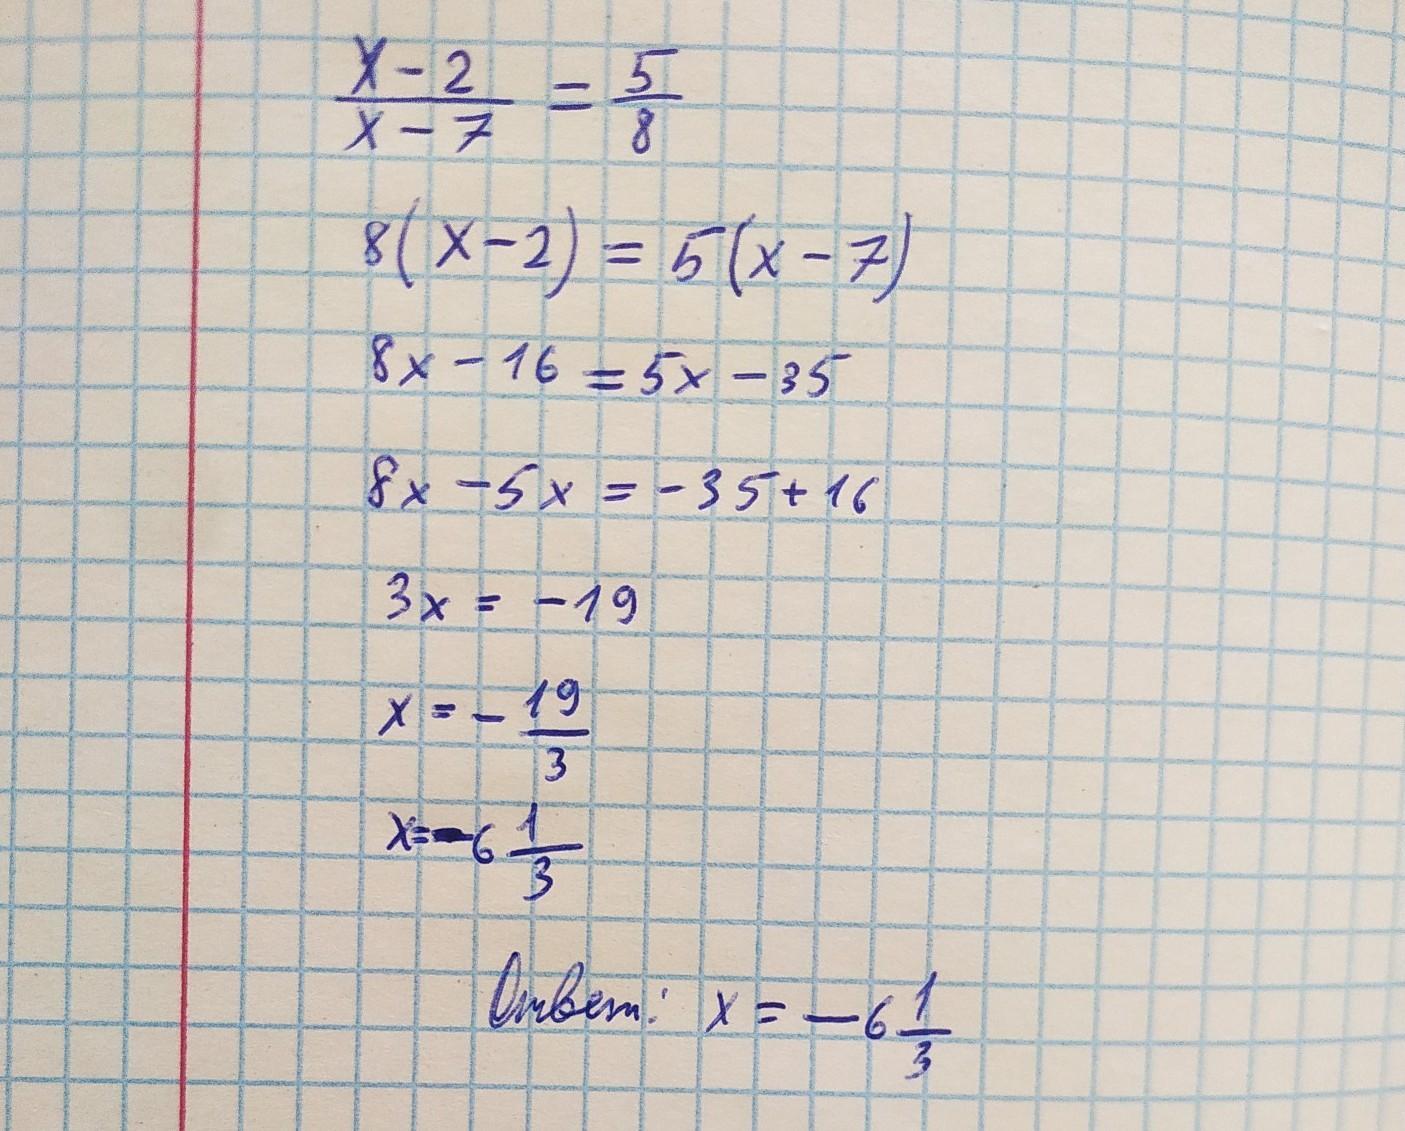 x-2/x-7 = 5/8
8(x-2) = 5(x-7)
8x - 16 = 5x - 35
8x - 5x = -35 + 16
3x = -19
x = - 19/3
x = -6 1/3
Ответ: x = -6 1/3